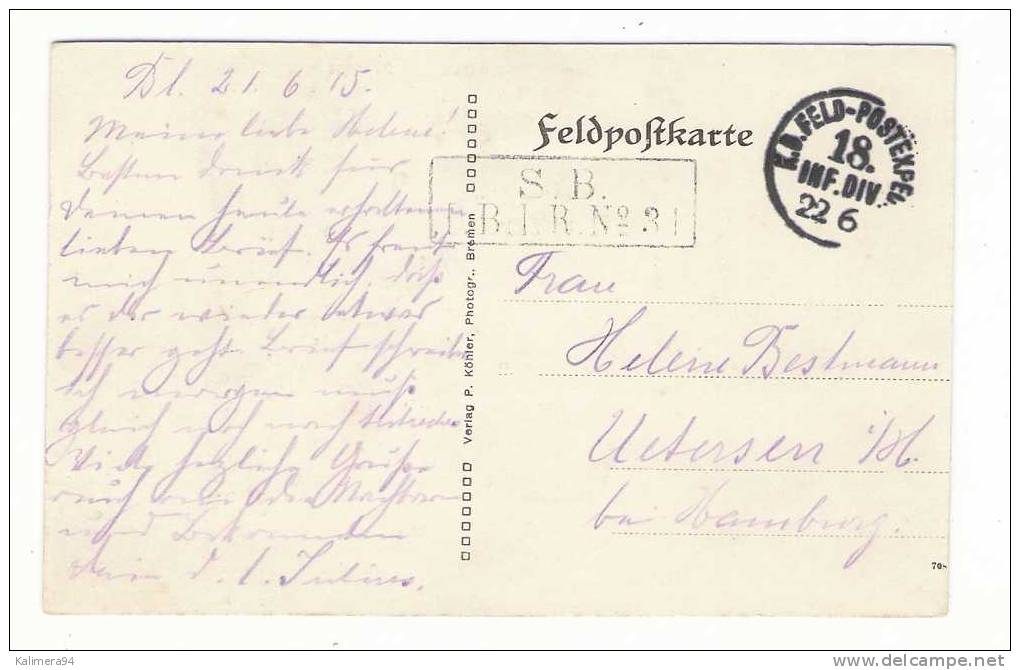 Bl. 21.6.15.
Meine liebe Helene!
Besten Dank für
Deinen heute erhaltenen
lieben Brief. Es freut
mich unendlich, daß
es Dir wieder etwas
besser geht. Brief schreibe
ich morgen, muß
gleich noch nach
Viele herzliche Grüße
auch an die
und Bekannten
Dein d. l. Julius.
Verlag P. Köhler, Photogr., Bremen
Feldpostkarte
S. B.
B. I. R. No 31
K.D. FELD-POSTEXPED
18.
INF. DIV.
22 6
Frau
Helene Bestmann
Uetersen i/H.
bei Hamburg.
70
Kalimera94
delcampe.net